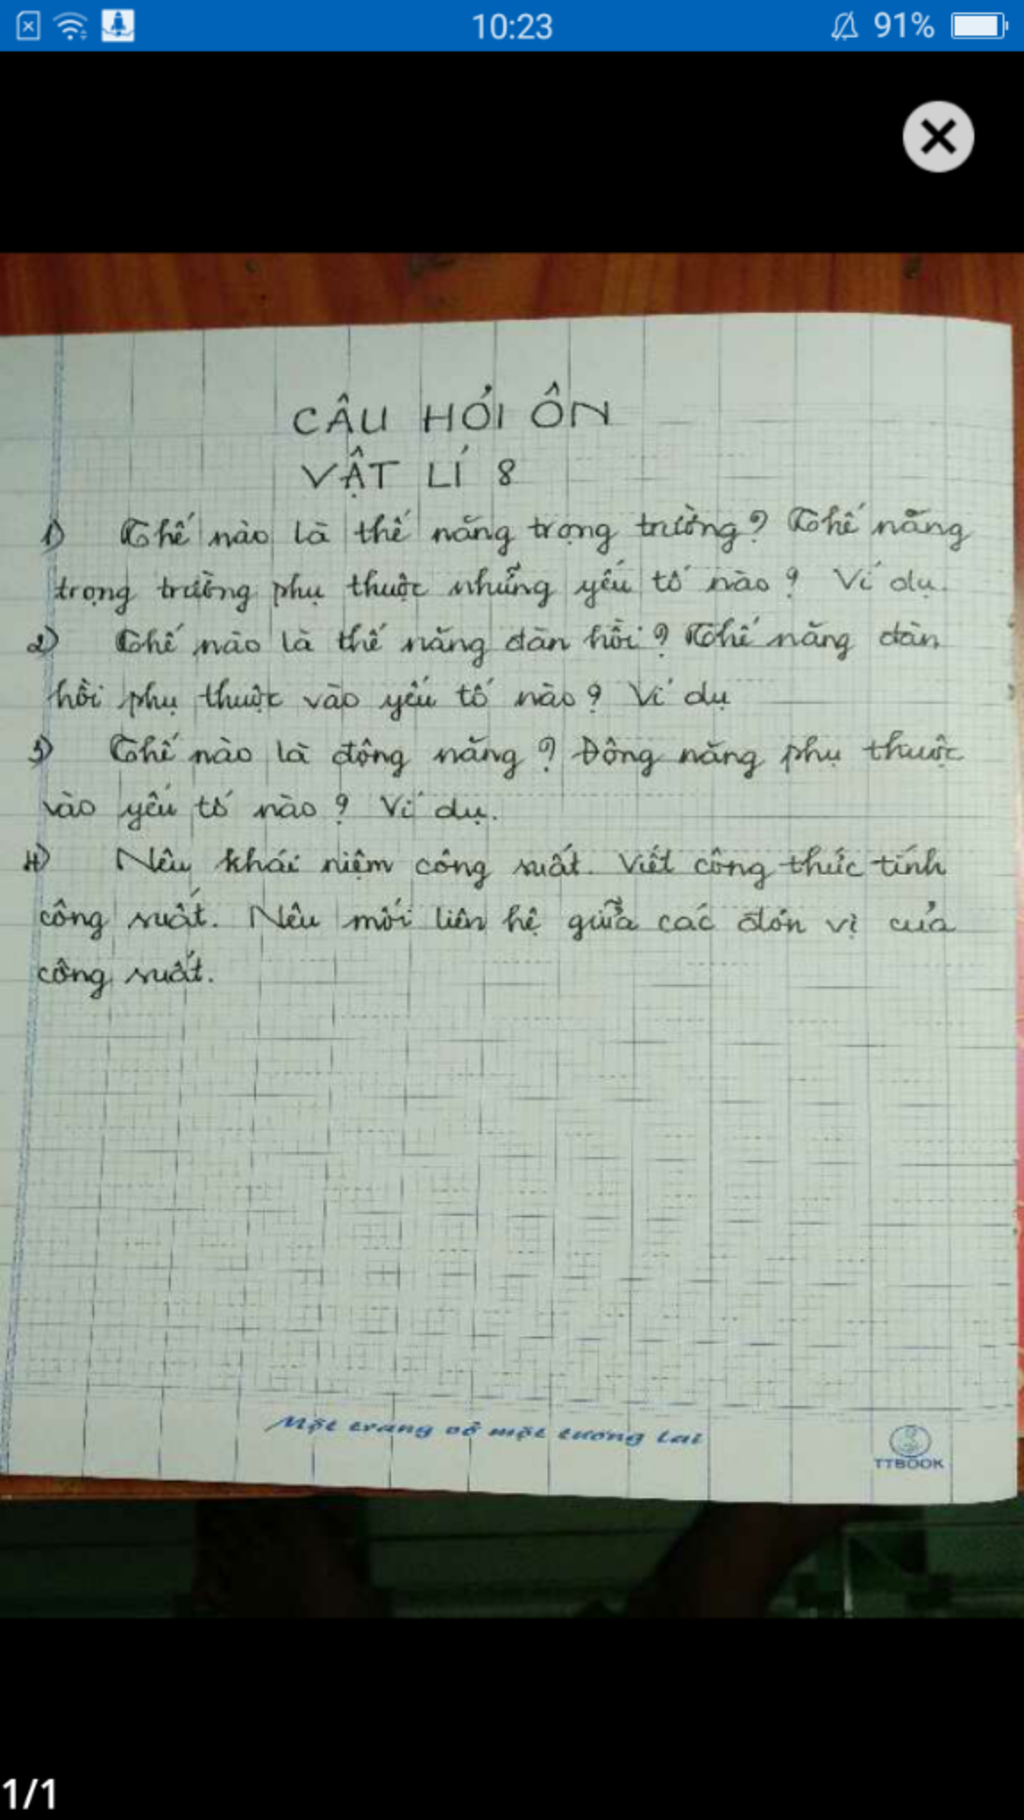 10:23
91%
CÂU HỎI ÔN
VẬT LÍ 8
1) Thế nào là thế năng trọng trường? Thế năng
trọng trường phụ thuộc những yếu tố nào? Ví dụ.
2) Thế nào là thế năng đàn hồi? Thế năng đàn
hồi phụ thuộc vào yếu tố nào? Ví dụ
3) Thế nào là động năng? Động năng phụ thuộc
vào yếu tố nào? Ví dụ.
4) Nêu khái niệm công suất. Viết công thức tính
công suất. Nêu mối liên hệ giữa các đơn vị của
công suất.
Một trang vở một tương lai
TTBOOK
1/1